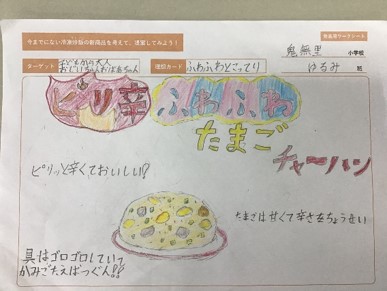 今までにない冷凍炒飯の新商品を考えて、提案してみよう!
ターゲット
子どもから大人
おじいちゃんおばあちゃん
ふわふわとこってり
鬼無里
小学校
はるみ
ピリ辛
ふわふわ
たまご
チャーハン
ピリッと辛くておいしい!?
たまごは甘くて辛さをちょうせい
具はゴロゴロしていて
かみごたえばつぐん!!